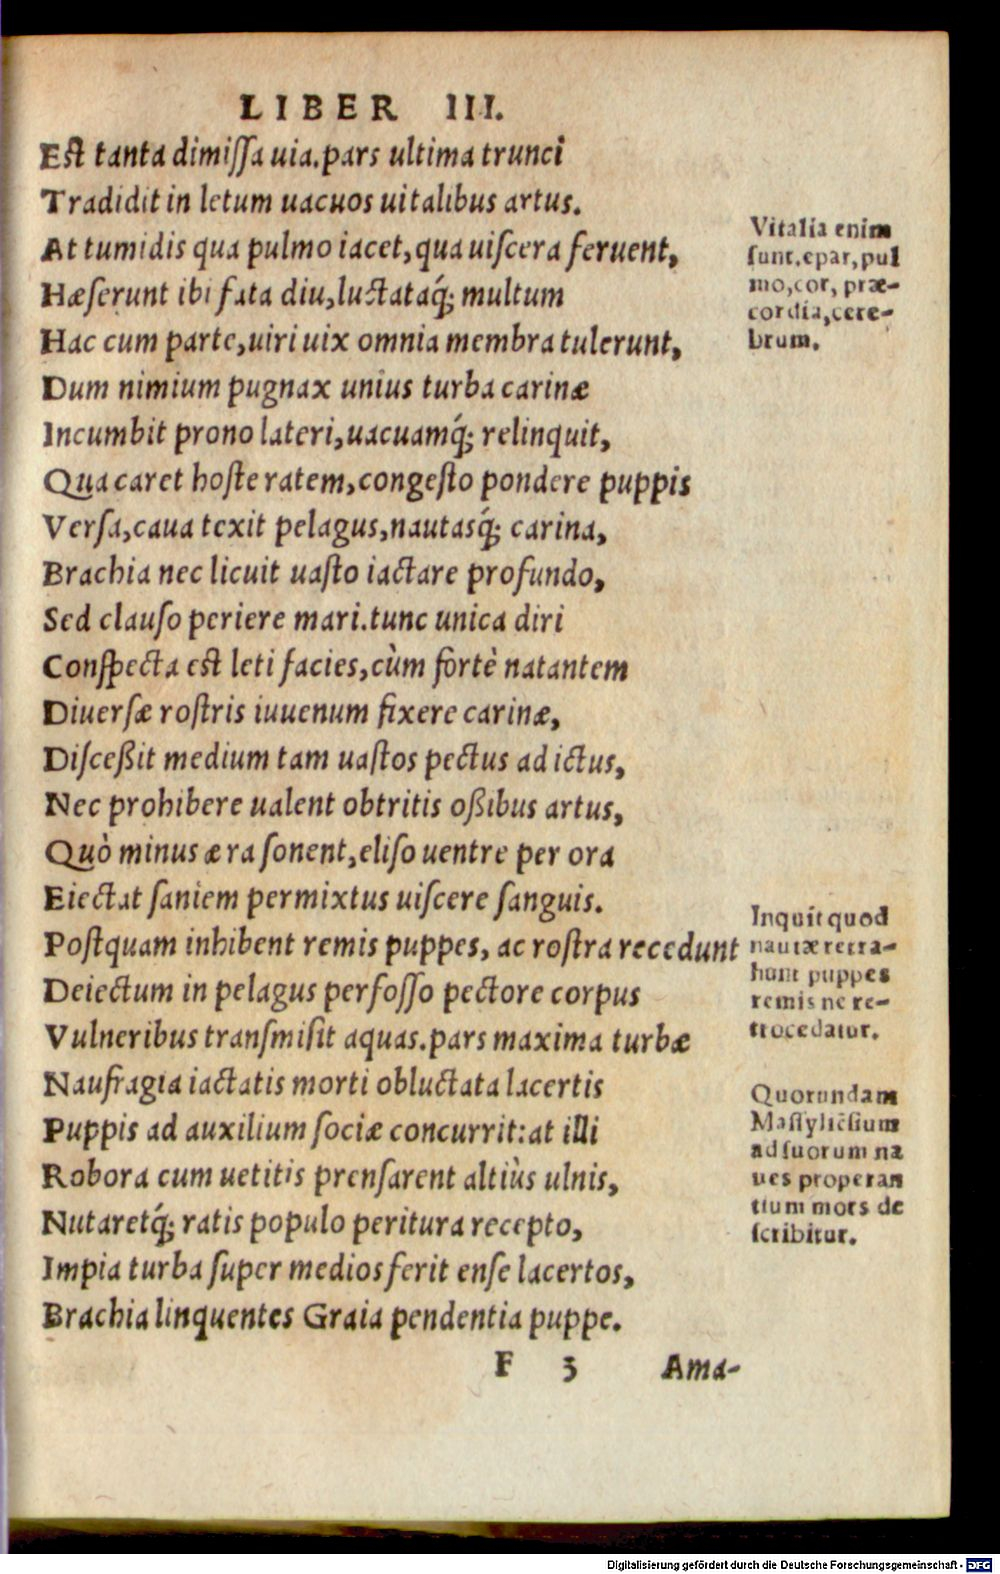 LIBER III.
Est tanta dimissa uia.pars ultima trunci
Tradidit in letum uacuos uitalibus artus.
At tumidis qua pulmo iacet, qua uiscera feruent,
Hæserunt ibi fata diu, luctataq́; multum
Hac cum parte, uiri uix omnia membra tulerunt,
Dum nimium pugnax unius turba carinæ
Incumbit prono lateri, uacuamq́; relinquit,
Qua caret hoste ratem, congesto pondere puppis
Versa, caua texit pelagus, nautasq́; carina,
Brachia nec licuit uasto iactare profundo,
Sed clauso periere mari.tunc unica diri
Conspecta est leti facies, cùm fortè natantem
Diuersæ rostris iuuenum fixere carinæ,
Disceßit medium tam uastos pectus ad ictus,
Nec prohibere ualent obtritis oßibus artus,
Quò minus æra sonent, eliso uentre per ora
Eiectat saniem permixtus uiscere sanguis.
Postquam inhibent remis puppes, ac rostra recedunt
Deiectum in pelagus perfosso pectore corpus
Vulneribus transmisit aquas.pars maxima turbæ
Naufragia iactatis morti obluctata lacertis
Puppis ad auxilium sociæ concurrit: at illi
Robora cum uetitis prensarent altiùs ulnis,
Nutaretq́; ratis populo peritura recepto,
Impia turba super medios ferit ense lacertos,
Brachia linquentes Graia pendentia puppe.
F 3 Ama-
Vitalia enim
sunt, epar, pul
mo, cor, præ-
cordia, cere-
brum.
Inquit quod
nautæ retra-
hunt puppes
remis ne re-
trocedatur.
Quorundam
Massyliẽsium
ad suorum na
ues properan
tium mors de
scribitur.
Digitalisierung gefördert durch die Deutsche Forschungsgemeinschaft - DFG